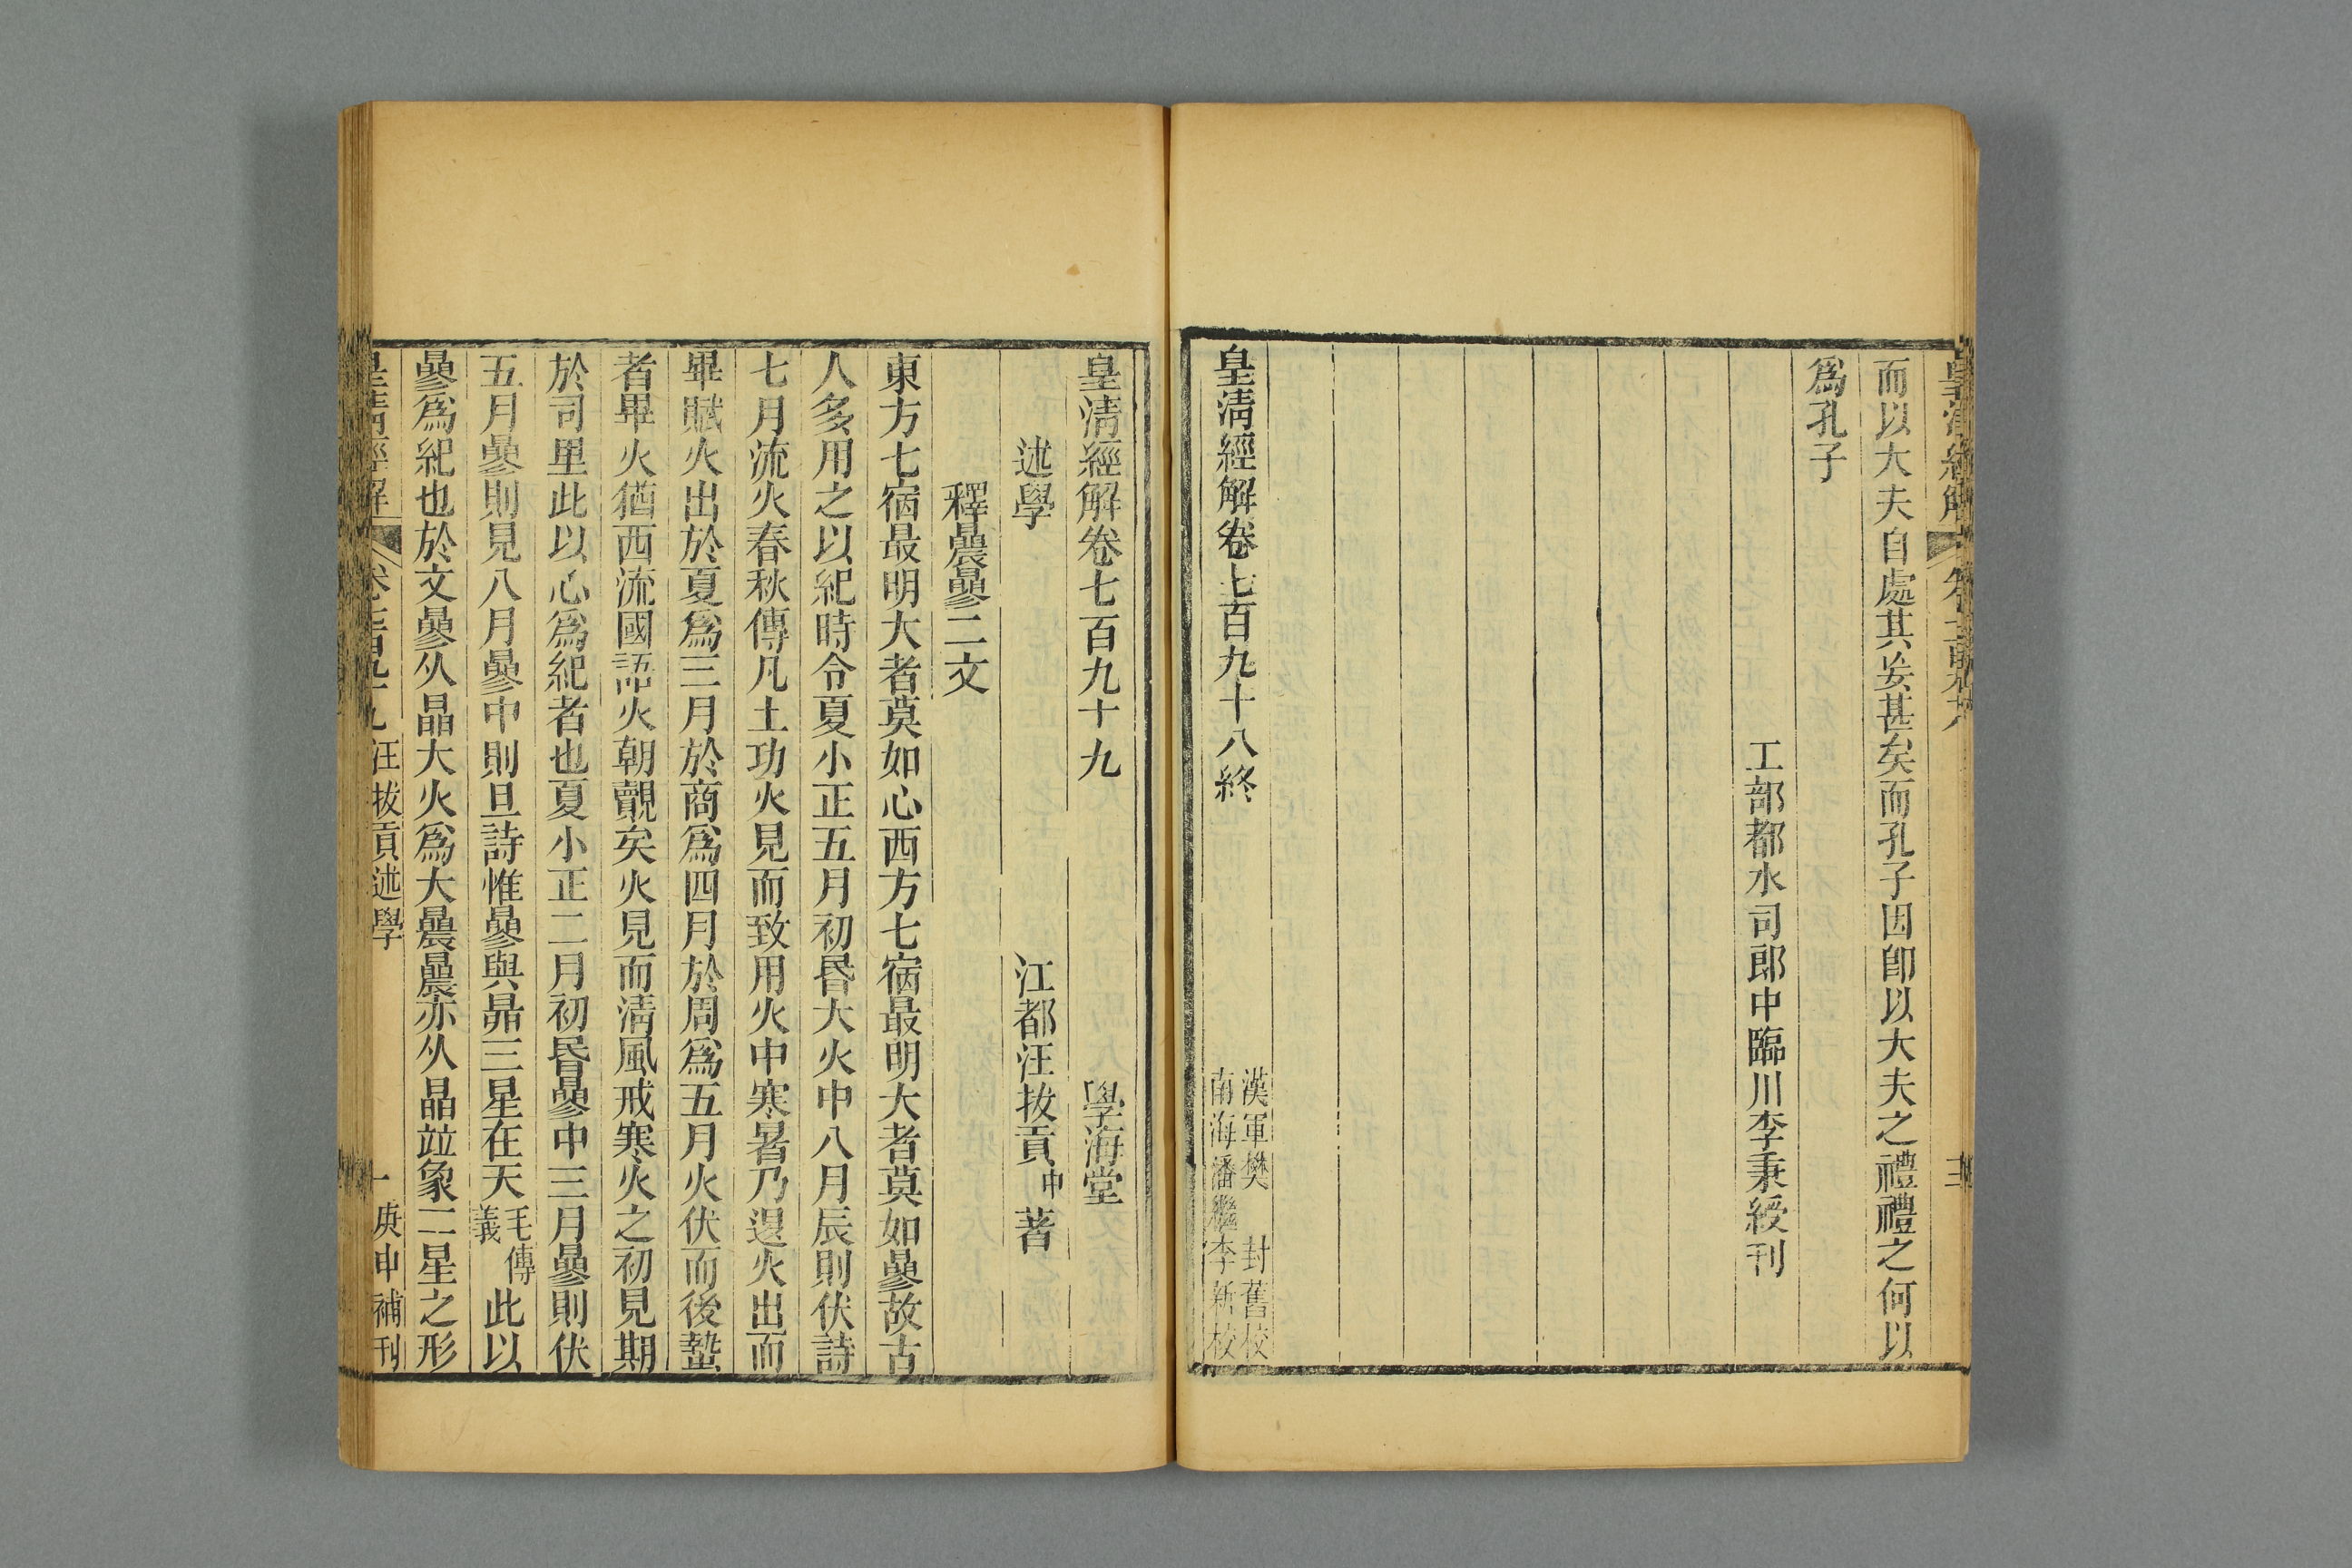 而以大夫自處其妄甚矣而孔子因卽以大夫之禮禮之何以
爲孔子
工部都水司郎中臨川李秉綬刊
皇清經解卷七百九十八終
漢軍樊 封舊校
南海潘繼李新校
皇清經解卷七百九十九 學海堂
述學 江都汪拔貢中著
釋曟曑二文
東方七宿最明大者莫如心西方七宿最明大者莫如曑故古
人多用之以紀時令夏小正五月初昬大火中八月辰則伏詩
七月流火春秋傳凡土功火見而致用火中寒暑乃退火出而
畢賦火出於夏爲三月於商爲四月於周爲五月火伏而後蟄
者畢火猶西流國語火朝覿矣火見而淸風戒寒火之初見期
於司里此以心爲紀者也夏小正二月初昬曑中三月曑則伏
五月曑則見八月曑中則旦詩惟曑與昴三星在天毛傳義此以
曑爲紀也於文曑从晶大火爲大曟曟亦从晶竝象二星之形
皇清經解 卷七百九十九 汪拔貢述學 一 庚申補刊